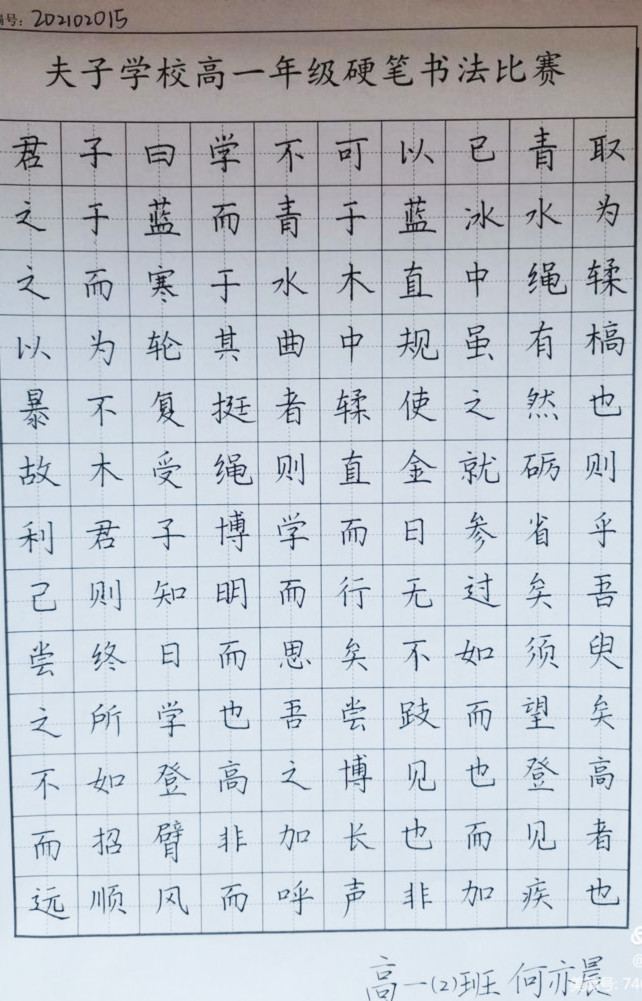 号：202102015
夫子学校高一年级硬笔书法比赛
君子曰学不可以已青取
之于蓝而青于蓝冰水为
之而寒于水木直中绳𫐓
以为轮其曲中规虽有槁
暴不复挺者𫐓使之然也
故木受绳则直金就砺则
利君子博学而日参省乎
己则知明而行无过矣吾
尝终日而思矣不如须臾
之所学也吾尝跂而望矣
不如登高之博见也登高
而招臂非加长也而见者
远顺风而呼声非加疾也
高一(2)班 何亦晨